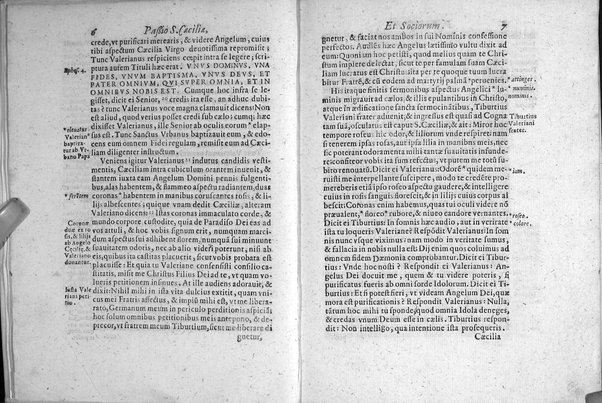 6 Passio S. Cæciliæ,
crede, vt purificari merearis, & videre Angelum, cuius
tibi aspectum Cæcilia Virgo deuotissima repromisit;
Tunc Valerianus respiciens cœpit intra se legere; scri-
ptura autem Tituli hæc erat. VNVS DOMINVS, VNA
Ephes. 4.
FIDES, VNVM BAPTISMA, VNVS DEVS, ET
PATER OMNIVM, QVI SVPER OMNIA, ET IN
OMNIBVS NOBIS EST. Cumque hoc infra se le-
gisset, dicit ei Senior, credis ita esse, an adhuc dubi-
tas? tunc Valerianus voce magna clamauit dicens Non
est aliud, quod verius posset credi sub cælo: cumq; hæc
dixisset Valerianus, ille Senior ab oculis eorum elap-
sus est. Tunc Sanctus Vrbanus baptizauit eum, & do-
cens eum omnem Fidei regulam, remisit eum ad Cæci-
liam diligenter instructum.
Valerianus
baptiza-
tur ab Vr-
bano Papa
Veniens igitur Valerianus indutus candidis vesti-
mentis, Cæciliam intra cubiculum orantem inuenit, &
stantem iuxta eam Angelum Domini pennis fulgenti-
bus, alas habentem, & flammeo aspectu radiantem, duas
coronas habentem in manibus coruscantes rosis, & li-
lijs albescentes: quique vnam dedit Cæciliæ, alteram
Valeriano dicens: Istas coronas immaculato corde, &
mundo corpore custodite, quia de Paradiso Dei eas ad
vos attuli, & hoc vobis signum erit, numquam marci-
dum aspectus sui adhibent florem, numquam sui minuunt
suauitatem odoris, nec ab alio videri poterunt, nisi ab
eis, quibus ita castitas placuerit, sicut vobis probata est
placuisse: Et quia tu Valeriane consensisti consilio ca-
stitatis, misit me Christus Filius Dei ad te, vt quam vo-
lueris petitionem insinues. At ille audiens adorauit, &
dixit: Nihil mihi in ista vita dulcius extitit, quam vni-
cus mei Fratris affectus, & impium mihi est, vt me libera-
to, Germanum meum in periculo perditionis aspiciã:
hoc solum omnibus petitionibus meis antepono, & de-
precor, vt fratrem meum Tiburtium, sicut me liberare di
gnetur,
Et Sociorum. 7
gnetur, & faciat nos ambos in sui Nominis confessione
perfectos. Audiẽs hæc Angelus lætissimo vultu dixit ad
eum: Quoniam hoc petisti, quod melius quam te Chri-
stum implere delectat, sicut te per famulam suam Cæci-
liam lucratus est Christus ita per te quoque tuum lucra-
bitur Fratrẽ, & cũ eodem ad martyrij palmã peruenies.
attinges.
His itaque finitis sermonibus aspectus Angelici lu-
minis migrauit ad cælos, & illis epulantibus in Christo,
atque in sanctis ædificatione sancta sermocinãtibus, Tiburtius
Valeriani frater aduenit, & ingressus est quasi ad Cogna
tam suã, osculatus est caput S. Cæciliæ, & ait: Miror hoc
tempore roseu: hic odor, & liliorum vnde respiret: nam
si tenerem ipsas rosas, aut ipsa lilia in manibus meis, nec
sic potuerant odoramenta mihi tantæ suauitatis infunde-
re: confiteor vobis ita sum refectus, vt putem me totũ su-
bito renouatũ. Dicit ei Valerianus: Odorẽ quidem me-
ruisti me interpellante suscipere, modo te credẽte pro-
mereberis etiã ipso roseo aspectu gaudere, & intelligere
cuius in rosis sanguis florescit, & in lilijs cuius corpus al-
bescit: Coronas enim habemus, quas tui oculi videre nõ
præualent, flosceo rubore, & niueo candore vernantes.
Dicit ei Tiburtius: In somnis hæc audio, aut in veritate
tu ista loqueris Valeriane? Respõdit Valerianus: In som
nis nunc vsque viximus: nam modo in veritate sumus,
& fallacia in nobis nulla est: Dij enim quos colimus ad
omnem fidem Dæmonia comprobantur. Dicit ei Ti-
burtius: Vnde hoc nosti? Respondit ei Valerianus: An-
gelus Dei docuit me, quem & tu videre poteris, si
purificatus fueris ab omni sorde Idolorum. Dicit ei Ti-
burtius: Et si potest fieri, vt videam Angelum Dei, quæ
mora est purificationis? Respondit Valerianus: Nulla,
tãtum hoc mihi tu sponde, quod omnia Idola deneges,
& credas vnum Deum esse in cælis. Tiburtius respon-
dit: Non intelligo, qua intentione ista prosequeris.
Cæcilia